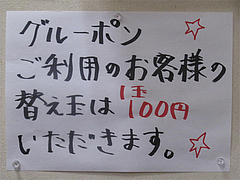 グルーポン
ご利用のお客様の
替え玉は1玉100円
いただきます。